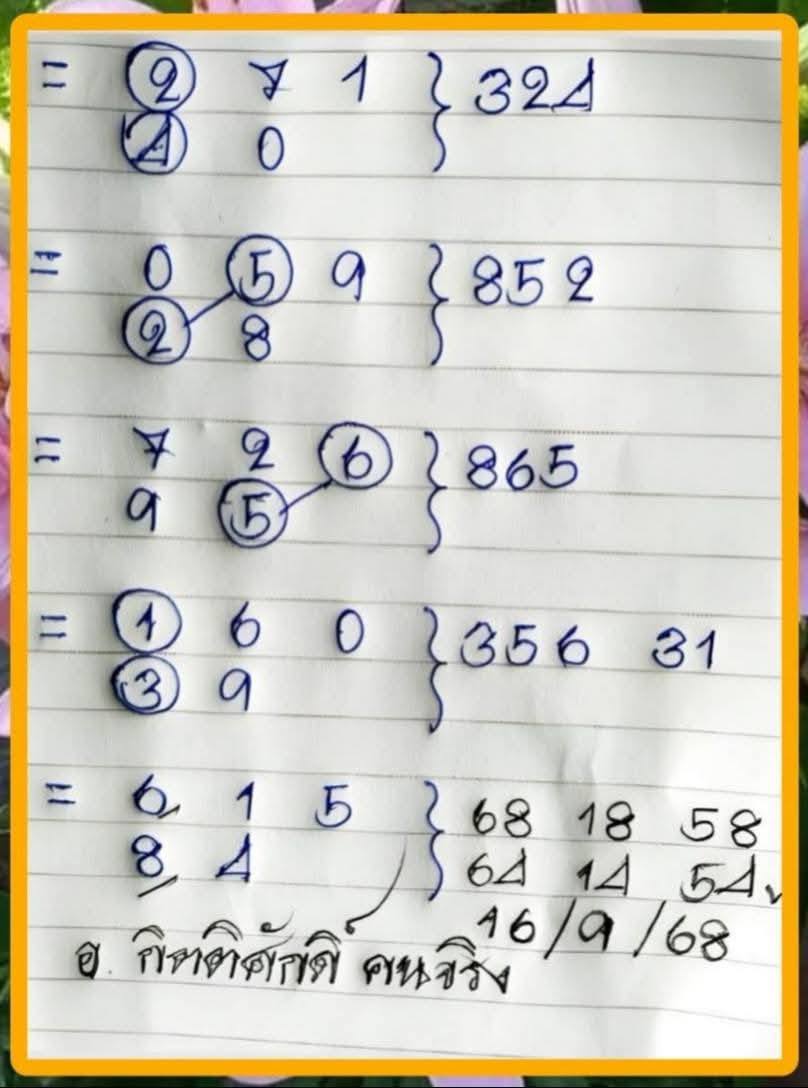 = 2 7 1 } 324
4 0
= 0 5 9 } 852
2 8
= 7 2 6 } 865
9 5
= 1 6 0 } 356 31
3 9
= 6 1 5 } 68 18 58
8 4 64 14 54
16/9/68
อ. กิตติศักดิ์ คนจริง